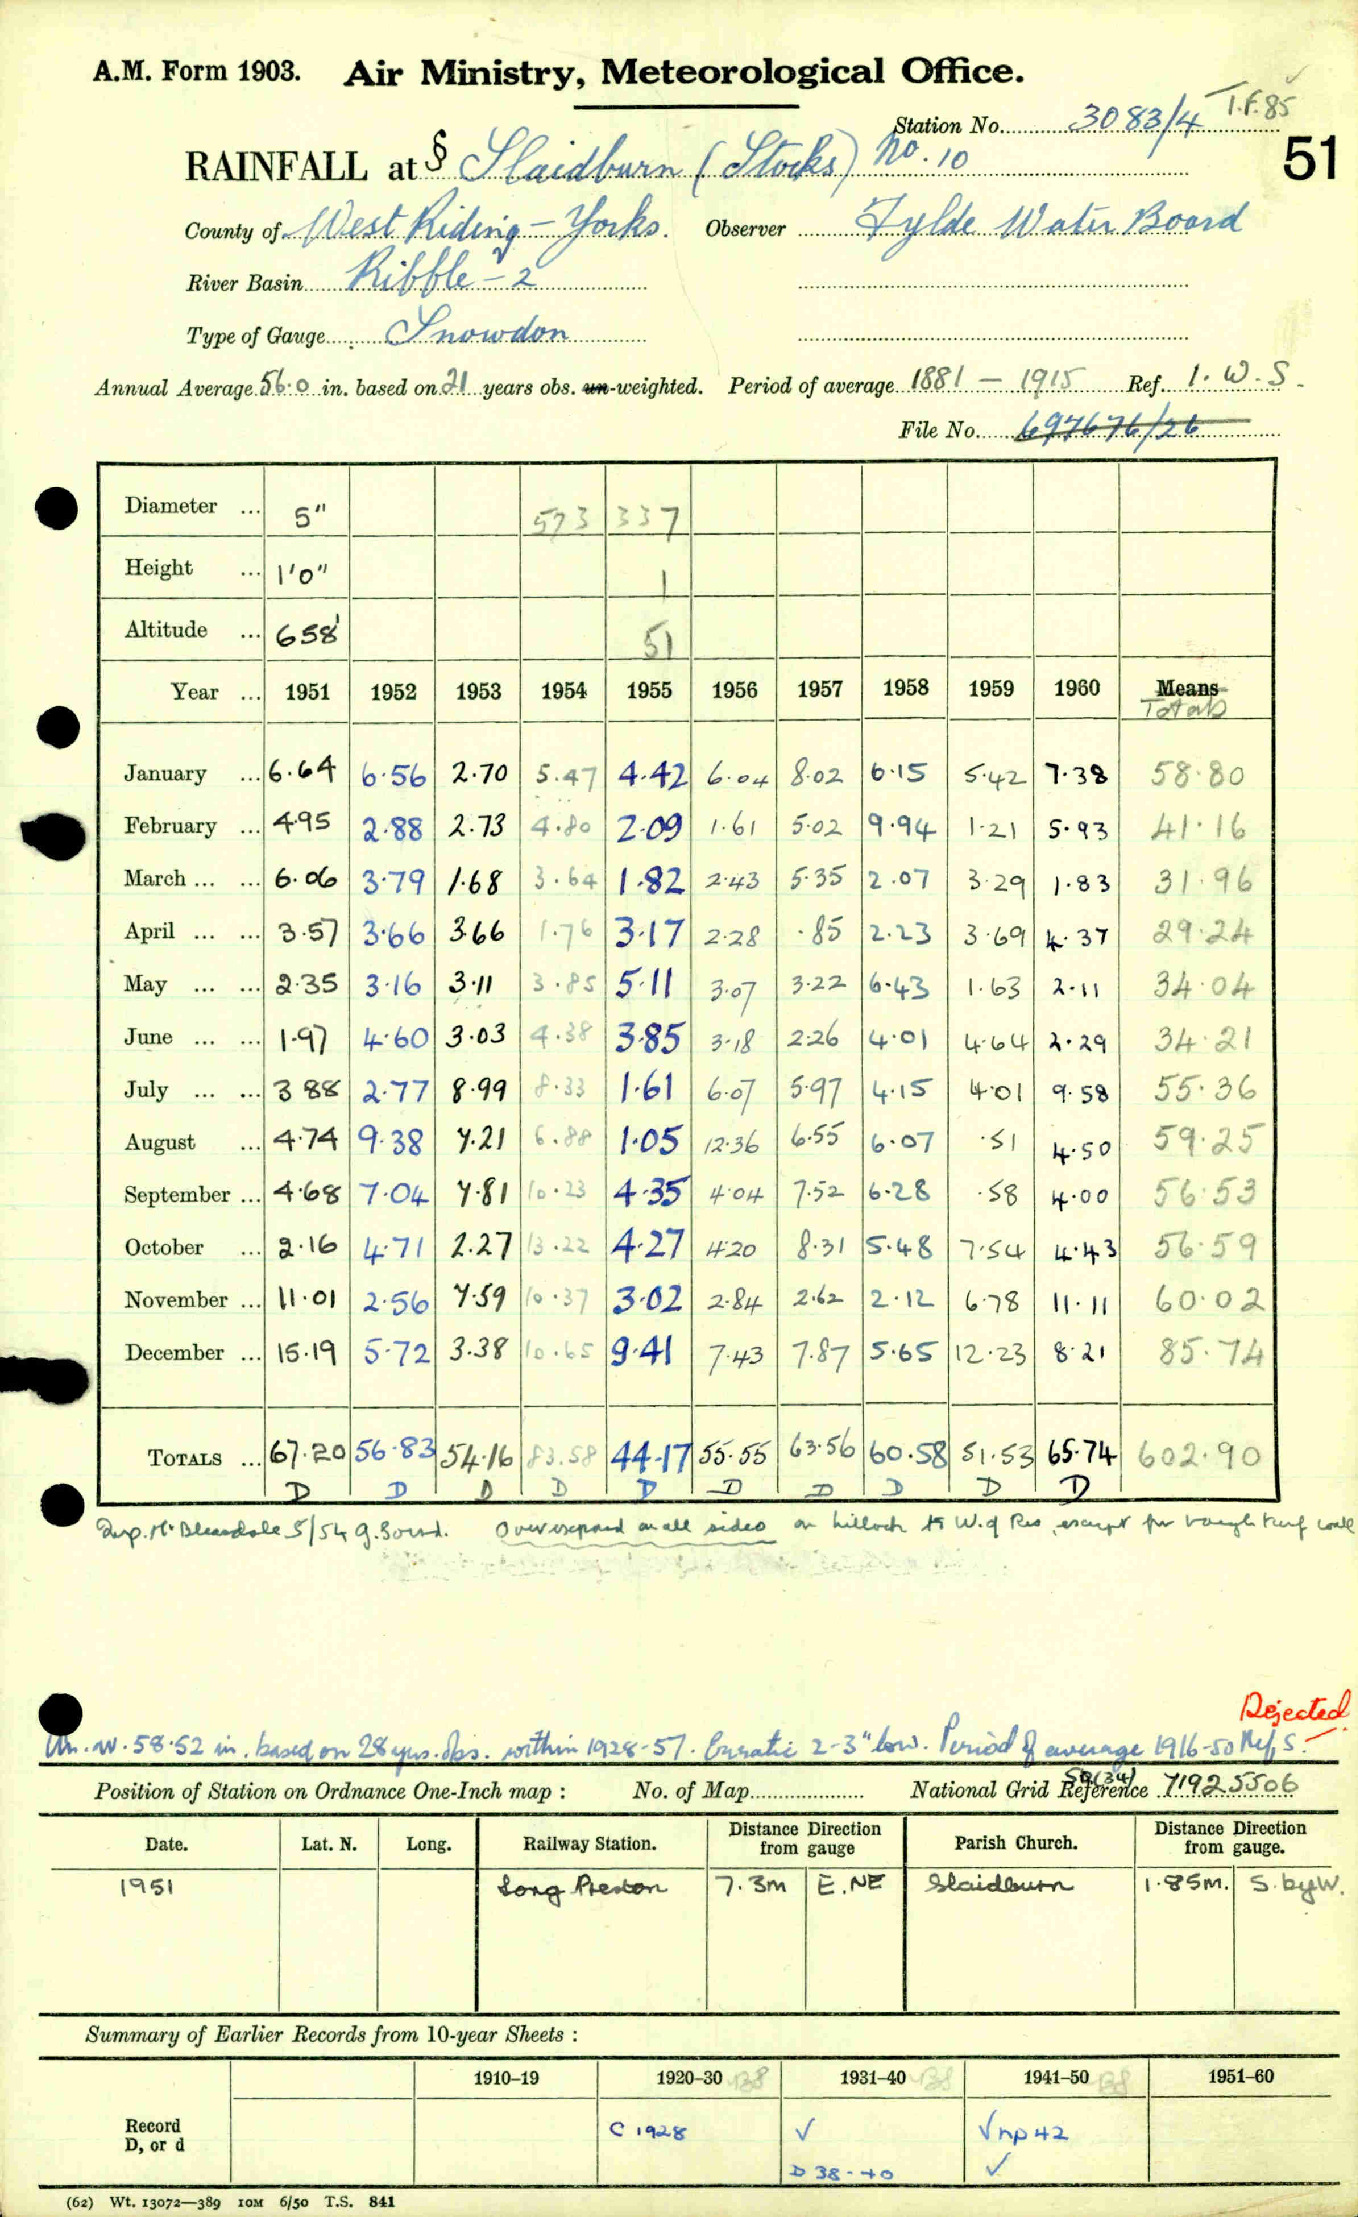 A.M. Form 1903. Air Ministry, Meteorological Office.
Station No. 3083/4 T.F.85
RAINFALL at § Slaidburn (Stocks) No. 10 51
County of West Riding - Yorks. Observer Fylde Water Board
River Basin Ribble - 2
Type of Gauge Snowdon
Annual Average 56.0 in. based on 21 years obs. un-weighted. Period of average 1881 - 1915 Ref. 1. W. S.
File No. 697676/26
Diameter ... 5" 573 337
Height ... 1'0" 1
Altitude ... 658' 51
Year ... 1951 1952 1953 1954 1955 1956 1957 1958 1959 1960 Means Totals
January ... 6.64 6.56 2.70 5.47 4.42 6.04 8.02 6.15 5.42 7.38 58.80
February ... 4.95 2.88 2.73 4.80 2.09 1.61 5.02 9.94 1.21 5.93 41.16
March ... ... 6.06 3.79 1.68 3.64 1.82 2.43 5.35 2.07 3.29 1.83 31.96
April ... ... 3.57 3.66 3.66 1.76 3.17 2.28 .85 2.23 3.69 4.37 29.24
May ... ... 2.35 3.16 3.11 3.85 5.11 3.07 3.22 6.43 1.63 2.11 34.04
June ... ... 1.97 4.60 3.03 4.38 3.85 3.18 2.26 4.01 4.64 2.29 34.21
July ... ... 3.88 2.77 8.99 8.33 1.61 6.07 5.97 4.15 4.01 9.58 55.36
August ... 4.74 9.38 7.21 6.88 1.05 12.36 6.55 6.07 .51 4.50 59.25
September ... 4.68 7.04 7.81 10.23 4.35 4.04 7.52 6.28 .58 4.00 56.53
October ... 2.16 4.71 2.27 13.22 4.27 4.20 8.31 5.48 7.54 4.43 56.59
November ... 11.01 2.56 7.59 10.37 3.02 2.84 2.62 2.12 6.78 11.11 60.02
December ... 15.19 5.72 3.38 10.65 9.41 7.43 7.87 5.65 12.23 8.21 85.74
TOTALS ... 67.20 56.83 54.16 83.58 44.17 55.55 63.56 60.58 51.53 65.74 602.90
D D D D D D D D D D
Insp. Mr Bleasdale 5/54 g. Overexposed on all sides on hillock to W. of Res except for rough turf wall
Rejected
Un. w. 58.52 in. based on 28 yrs. obs. within 1928-57. Erratic 2-3" low. Period of average 1916-50 Ref S.
Position of Station on Ordnance One-Inch map : No. of Map National Grid Reference SD(34) 71925506
Date. Lat. N. Long. Railway Station. Distance from Direction gauge Parish Church. Distance from Direction gauge.
1951 Long Preston 7.3m E.NE Slaidburn 1.85m. S. by W.
Summary of Earlier Records from 10-year Sheets :
1910-19 1920-30 1931-40 1941-50 1951-60
Record D, or d C 1928 ✓ ✓ np 42
D 38-40 ✓
(62) Wt. 13072—389 10M 6/50 T.S. 841